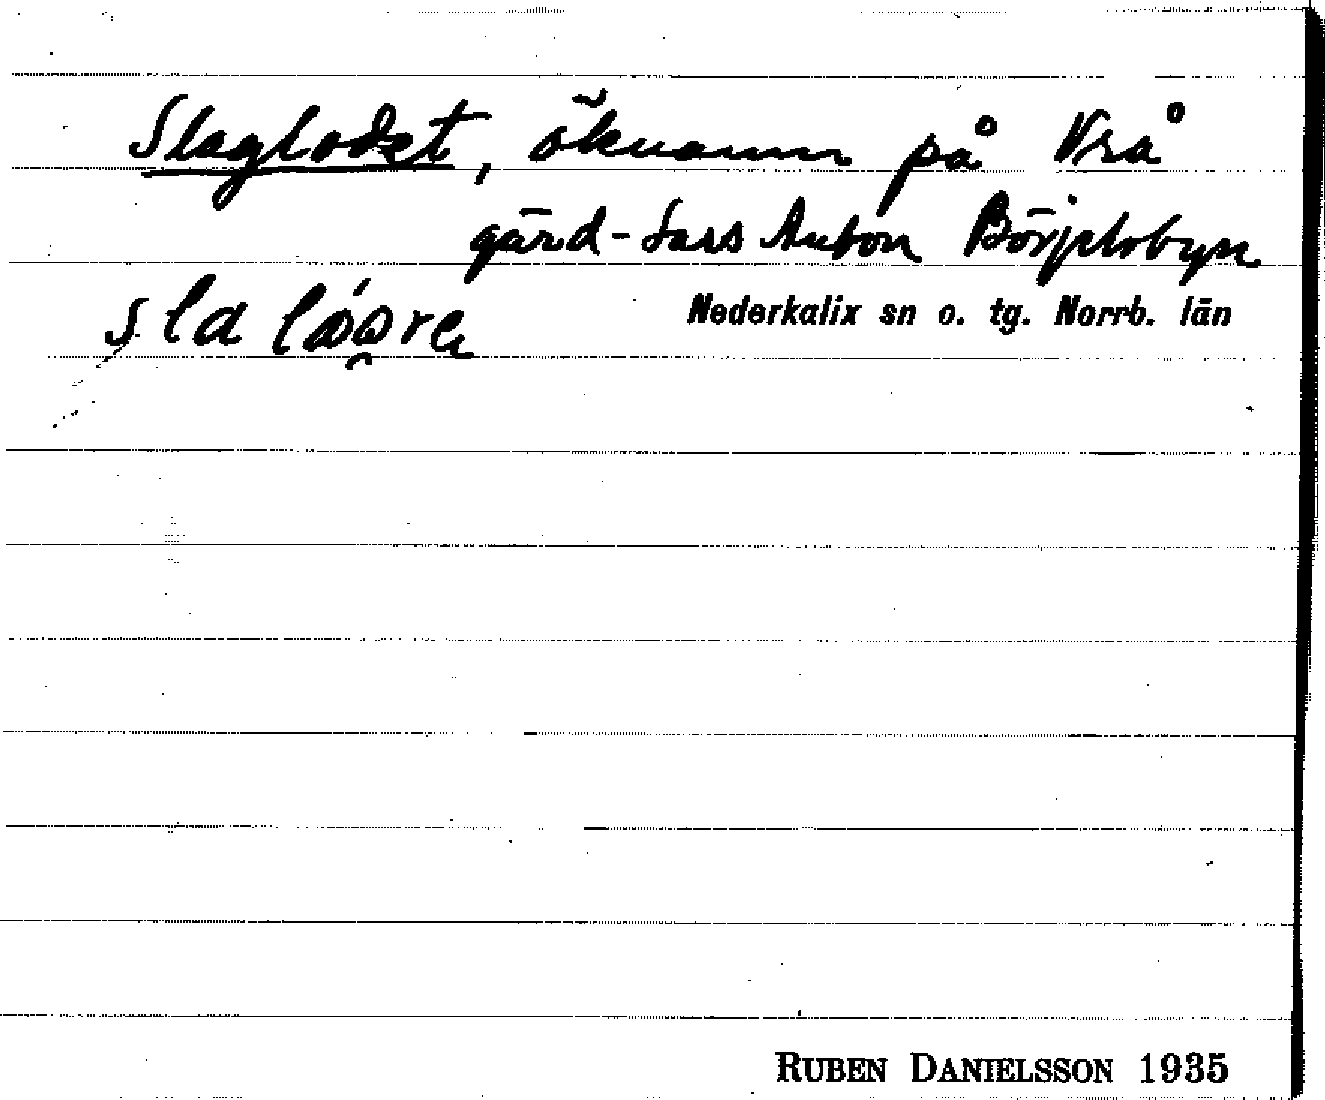 Slaglodet, öknamn på Vrå
gärd-Lars Anton Börjelsbyn
Nederkalix sn o. tg. Norrb. län
RUBEN DANIELSSON 1935